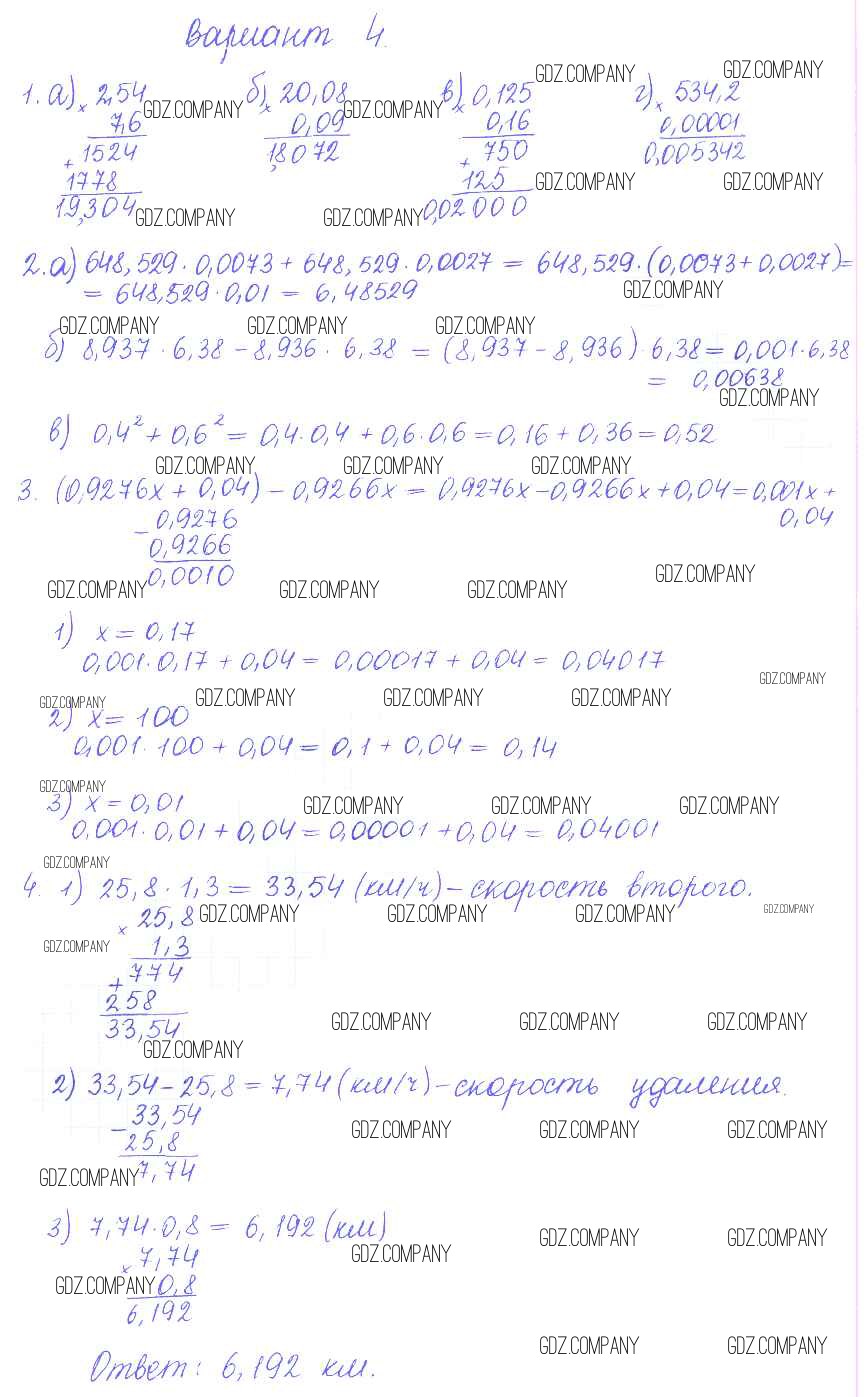 Вариант 4.
1. а) × 2,54 б) × 20,08 в) × 0,125 г) × 534,2
7,6 0,09 0,16 0,00001
+ 1524 1,8072 + 750 0,005342
1778 125
19,304 0,02000
2. а) 648,529 · 0,0073 + 648,529 · 0,0027 = 648,529 · (0,0073 + 0,0027) =
= 648,529 · 0,01 = 6,48529
б) 8,937 · 6,38 – 8,936 · 6,38 = (8,937 – 8,936) · 6,38 = 0,001 · 6,38
= 0,00638
в) 0,4² + 0,6² = 0,4 · 0,4 + 0,6 · 0,6 = 0,16 + 0,36 = 0,52
3. (0,9276x + 0,04) – 0,9266x = 0,9276x – 0,9266x + 0,04 = 0,001x +
0,04
– 0,9276
0,9266
0,0010
1) x = 0,17
0,001 · 0,17 + 0,04 = 0,00017 + 0,04 = 0,04017
2) x = 100
0,001 · 100 + 0,04 = 0,1 + 0,04 = 0,14
3) x = 0,01
0,001 · 0,01 + 0,04 = 0,00001 + 0,04 = 0,04001
4. 1) 25,8 · 1,3 = 33,54 (км/ч) – скорость второго.
× 25,8
1,3
+ 774
258
33,54
2) 33,54 – 25,8 = 7,74 (км/ч) – скорость удаления.
– 33,54
25,8
7,74
3) 7,74 · 0,8 = 6,192 (км)
× 7,74
0,8
6,192
Ответ: 6,192 км.
GDZ.COMPANY